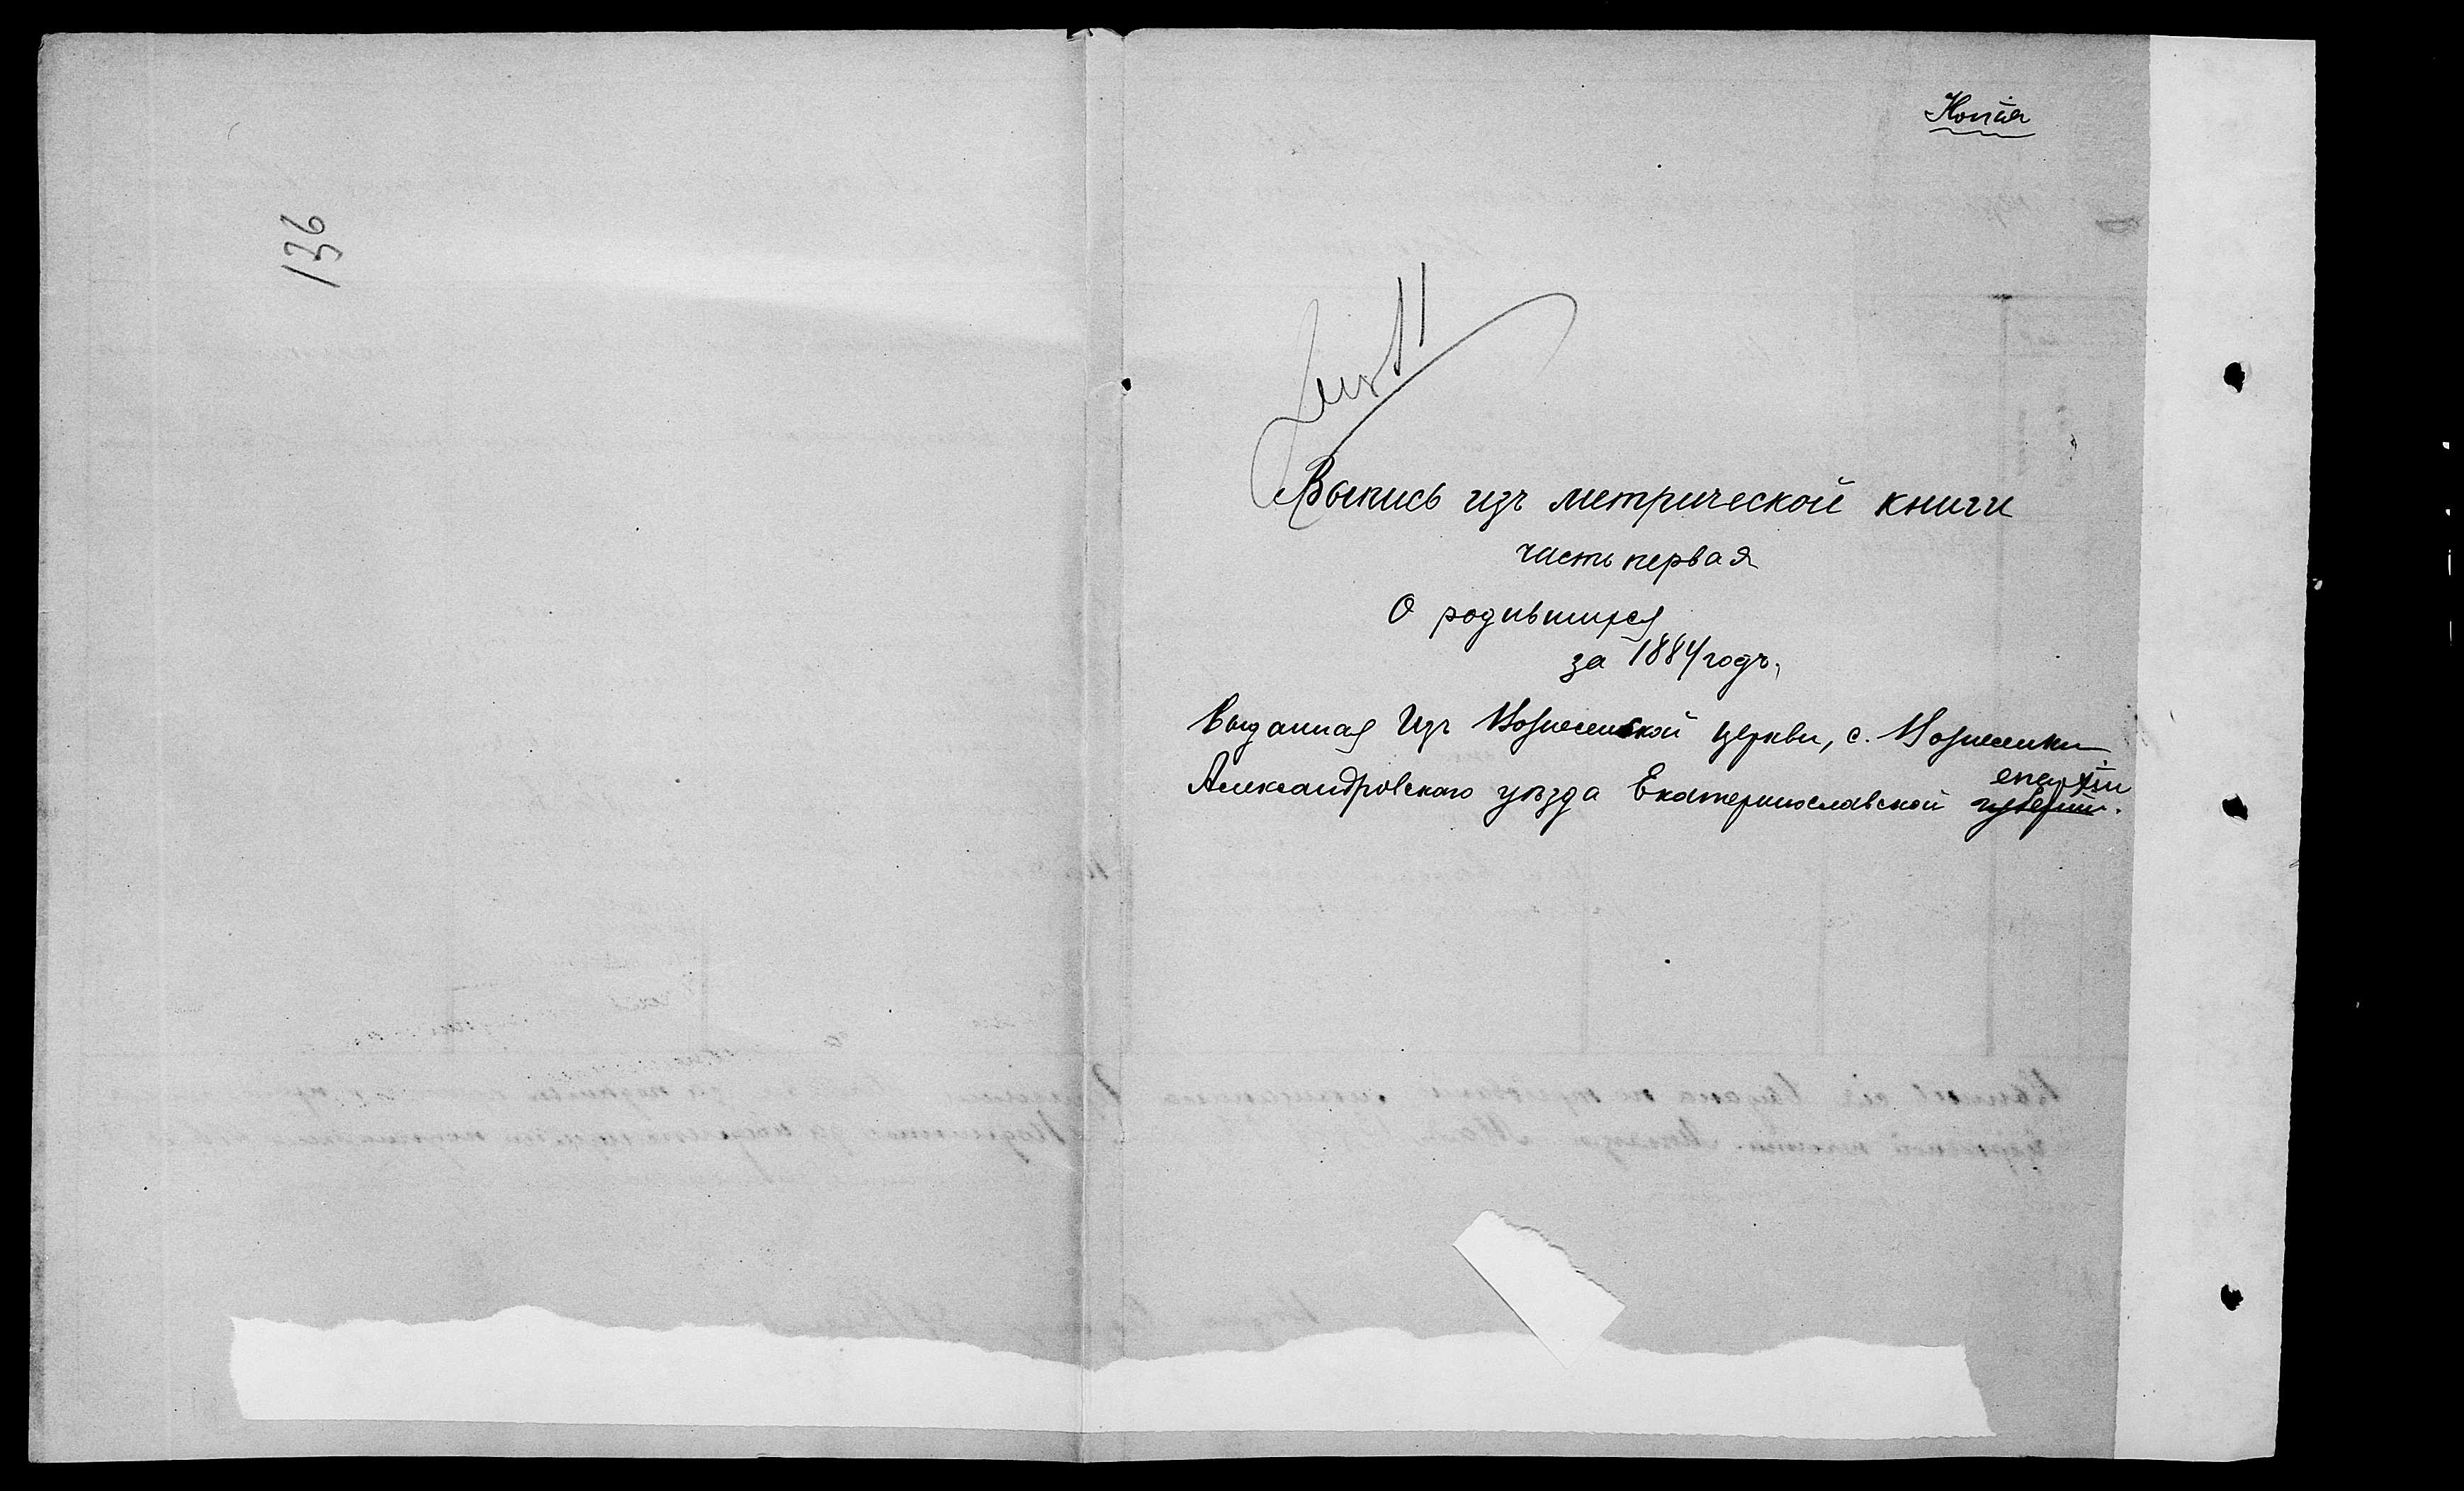 136
Копія
Выпись изъ метрической книги
часть первая
О родившихся
за 1884 годъ,
Выданная Изъ Вознесенской церкви, с. Вознесенки
Александровскаго уѣзда Екатеринославской епархіи губерніи.